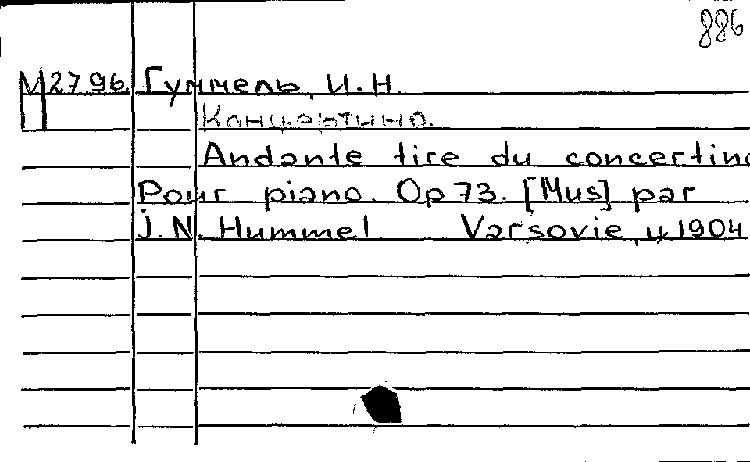 886
М 2796 Гуммель, И.Н.
Концертино.
Andante tire du concertino
Pour piano. Op 73. [Mus] par
J. N. Hummel Varsovie, 1904